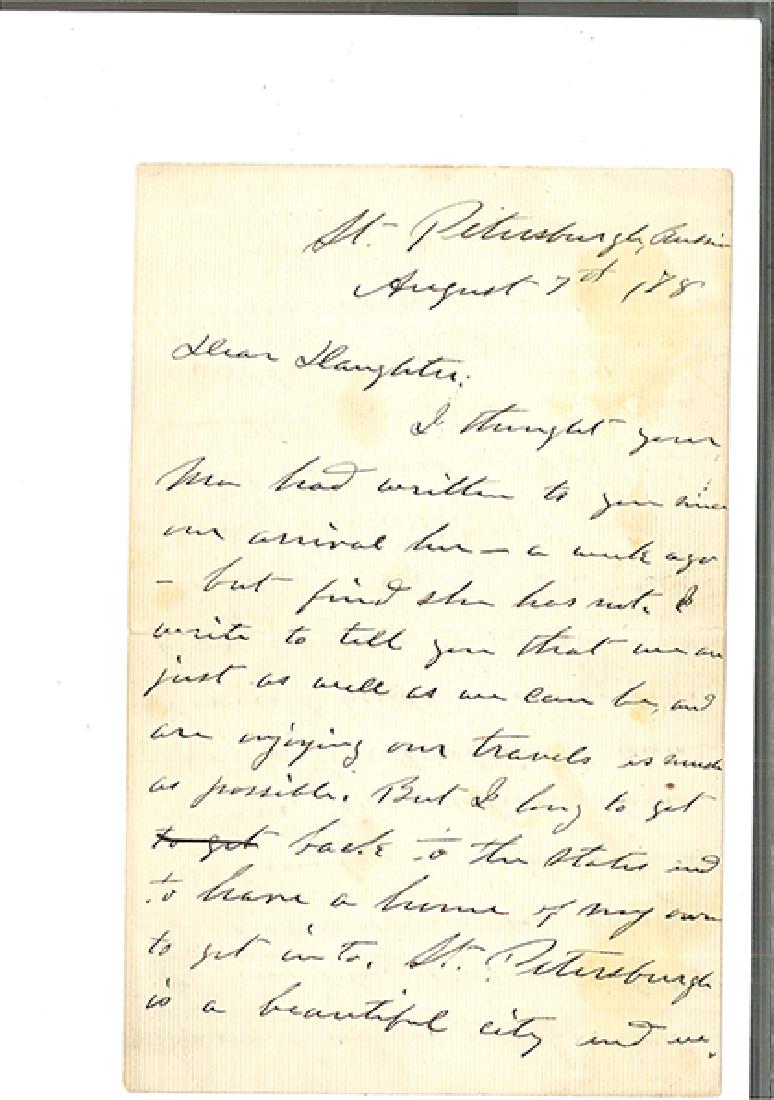 St. Petersburgh, Russia
August 7th 188
Dear Daughter;
I thought your
Ma had written to you since
our arrival her - a week ago
- but find she has not. I
write to tell you that we are
just as well as we can be, and
are enjoying our travels as much
as possible. But I long to get
to get back to the States and
to have a home of my own
to get into. St. Petersburgh
is a beautiful city and we